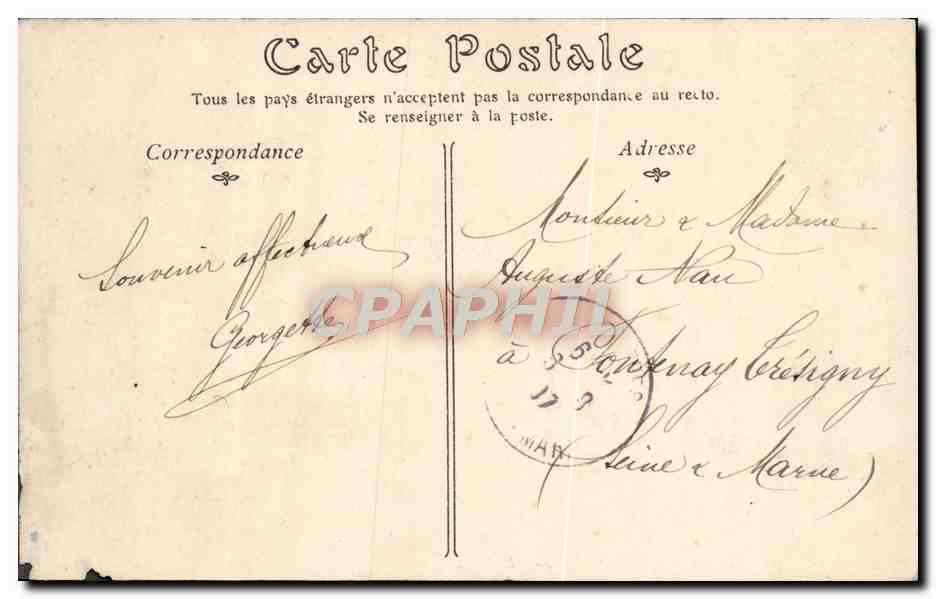 Carte Postale
Tous les pays étrangers n'acceptent pas la correspondance au recto.
Se renseigner à la poste.
Correspondance
Adresse
Souvenir affectueux
Georgette
Monsieur & Madame
Auguste Nau
à Fontenay Trésigny
(Seine & Marne)
CPAPHIL
MAR